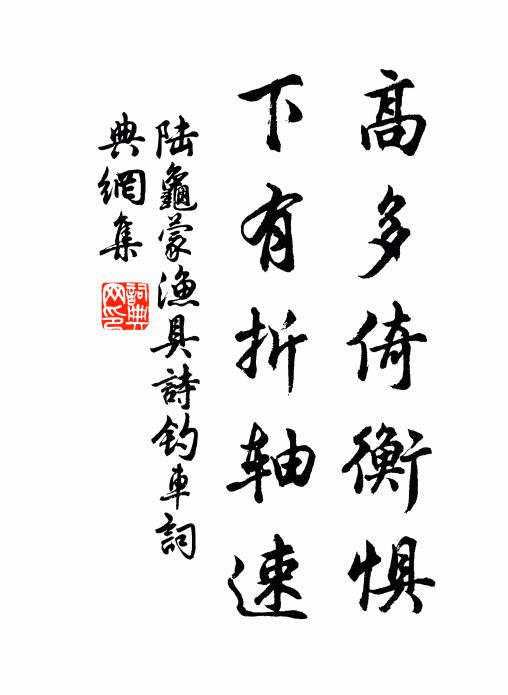 高多倚衡惧
下有折轴速
陆龜蒙漁具詩釣車詞
典網集
詞典網印